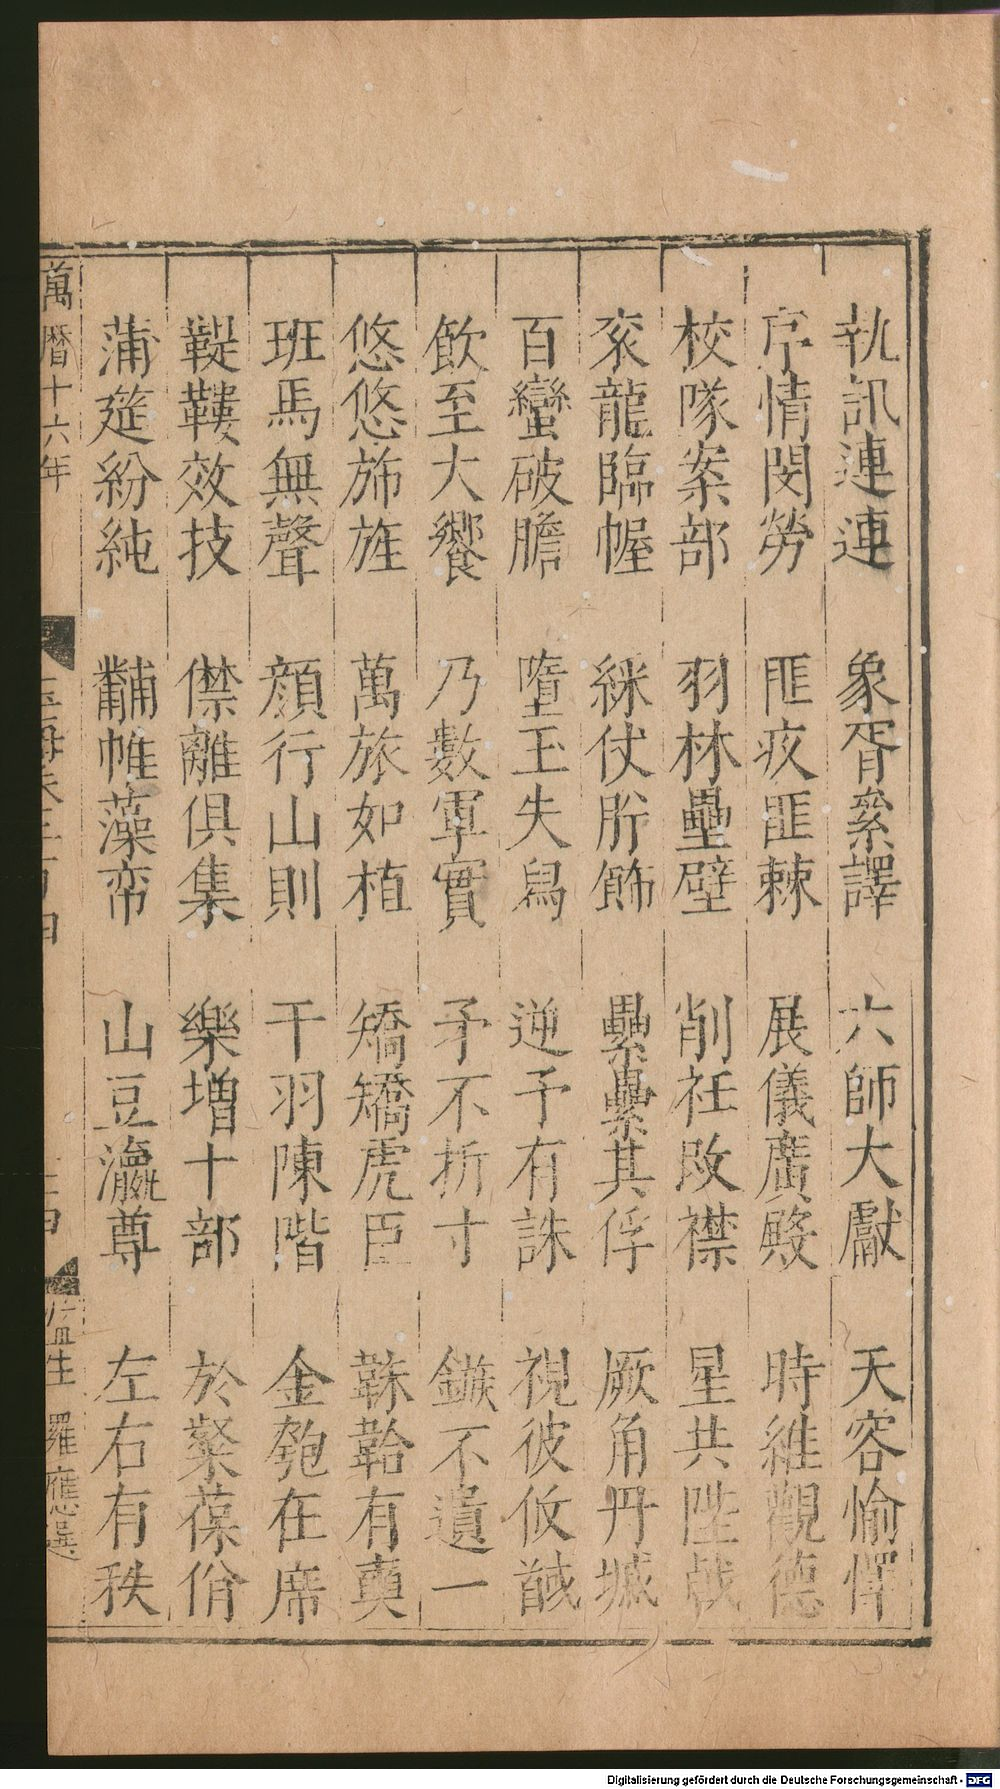 執訊連連 象胥絫譯 六師大獻 天容愉懌
序情閔勞 匪疚匪棘 展儀廣殿 時維觀德
校隊案部 羽林壘壁 削衽改襟 星共陛戟
衮龍臨幄 綵仗䏶飾 纍纍其俘 厥角丹墄
百蠻破膽 墮玉失舄 逆予有誅 視彼攸馘
飲至大饗 乃數軍實 矛不折寸 鏃不遺一
悠悠斾旌 萬旅如植 矯矯虎臣 韎韐有奭
班馬無聲 顔行山則 干羽陳階 金匏在席
鞮鞻效技 僸離俱集 樂增十部 於粲葆佾
蒲筵紛純 黼帷藻帟 山豆瀛尊 左右有秩
萬曆十六年 監生 羅應選
Digitalisierung gefördert durch die Deutsche Forschungsgemeinschaft - DFG